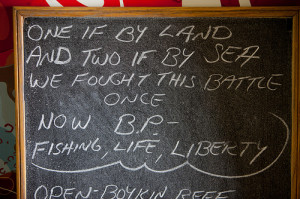 ONE IF BY LAND
AND TWO IF BY SEA
WE FOUGHT THIS BATTLE
ONCE
NOW B.P.-
FISHING, LIFE, LIBERTY
OPEN-BOYKIN REEF